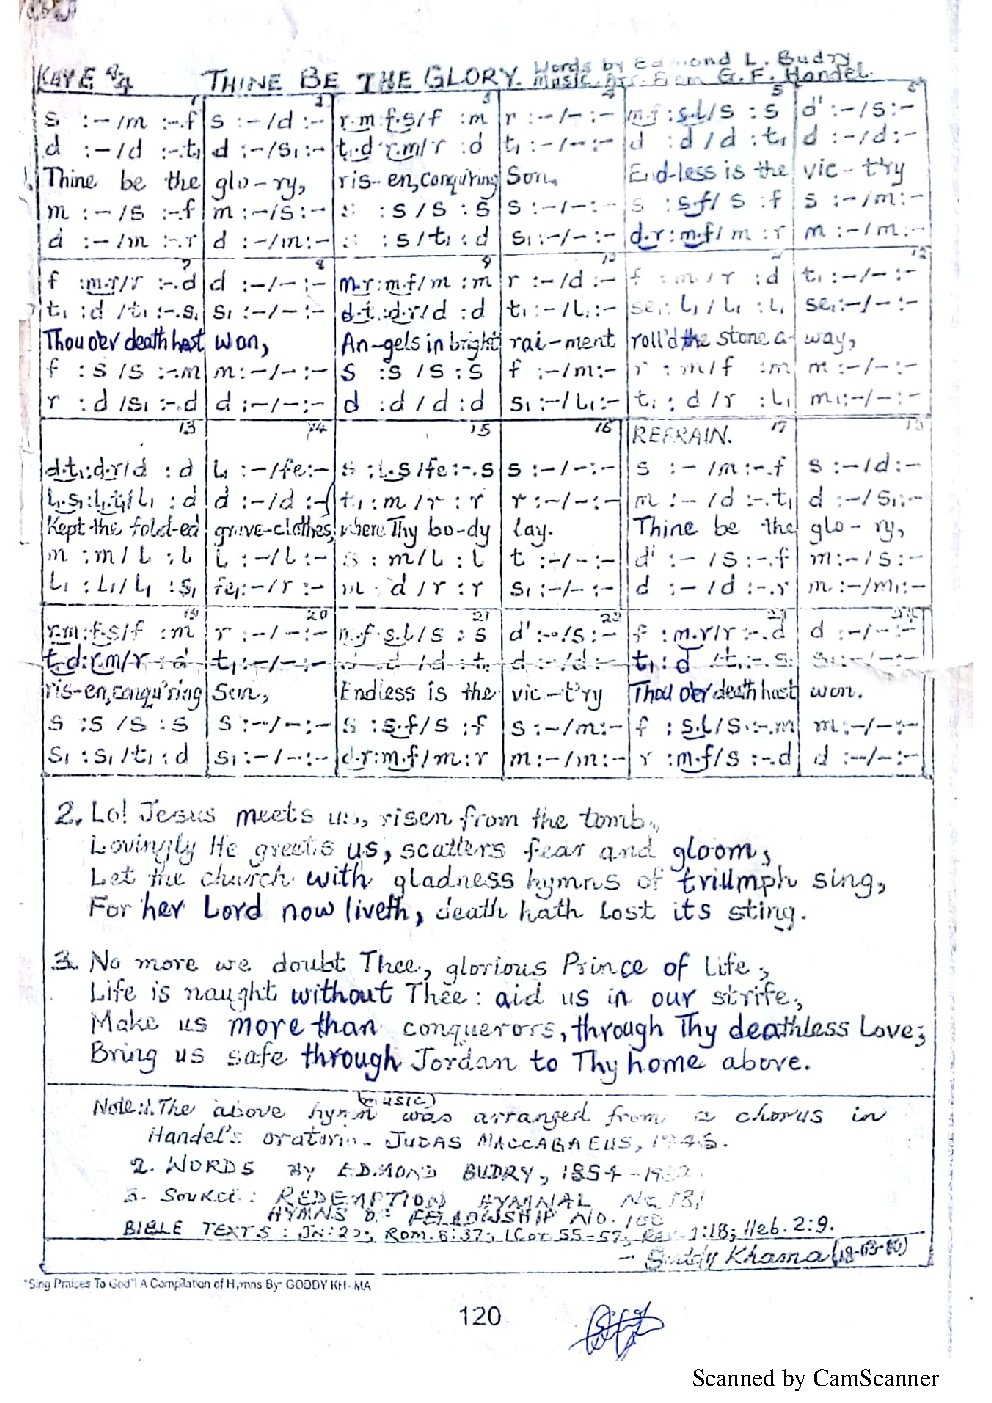 KEY E 4/4 THINE BE THE GLORY. Words by Edmond L. Budry
Music Arr. from G. F. Handel.
1 2 3 4 5 6
s :–/m :-.f | s :–/d :– | r.m:f.s/f :m | r :–/– :– | m.f :s.l/s :s | d' :–/s :–
d :–/d :-.t₁ | d :–/s₁ :– | t₁.d:r.m/r :d | t₁ :–/– :– | d :d /d :t₁ | d :–/d :–
Thine be the glo-ry, ris-en, conqu'ring Son, End-less is the vic-t'ry
m :–/s :-.f | m :–/s :– | s :s /s :s | s :–/– :– | s :s.f/s :f | s :–/m :–
d :–/m :-.r | d :–/m :– | :s /t₁ :d | s₁ :–/– :– | d.r :m.f/m :r | m :–/m :–
7 8 9 10 11 12
f :m.r/r :-.d | d :–/– :– | m.r :m.f/m :m | r :–/d :– | f :m /r :d | t₁ :–/– :–
t₁ :d /t₁ :-.s₁ | s₁ :–/– :– | d.t₁ :d.r/d :d | t₁ :–/l₁ :– | se₁ :l₁ /l₁ :l₁ | se₁ :–/– :–
Thou o'er death hast won, An-gels in bright rai-ment roll'd the stone a-way,
f :s /s :-.m | m :–/– :– | s :s /s :s | f :–/m :– | r :m/f :m | m :–/– :–
r :d /s₁ :-.d | d :–/– :– | d :d /d :d | s₁ :–/l₁ :– | t₁ :d /r :l₁ | m₁ :–/– :–
13 14 15 16 REFRAIN. 17 18
d.t₁ :d.r/d :d | l₁ :–/fe :– | s :l.s/fe :-.s | s :–/– :– | s :–/m :-.f | s :–/d :–
l₁.s₁ :l₁.t₁/l₁ :d | d :–/d :– | t₁ :m/r :r | r :–/– :– | m :–/d :-.t₁ | d :–/s₁ :–
Kept the fold-ed grave-clothes, where Thy bo-dy lay. Thine be the glo-ry,
m :m/l :l | l :–/l :– | s :m/l :l | t :–/– :– | d' :–/s :-.f | m :–/s :–
l₁ :l₁/l₁ :s₁ | fe₁ :–/r :– | m :d /r :r | s₁ :–/– :– | d :–/d :-.r | m :–/m₁ :–
19 20 21 22 23 24
r.m :f.s/f :m | r :–/– :– | m.f :s.l/s :s | d' :–/s :– | f :m.r/r :-.d | d :–/– :–
t₁.d :r.m/r :d | t₁ :–/– :– | d :d /d :t₁ | d :–/d :– | t₁ :d /t₁ :-.s₁ | s₁ :–/– :–
ris-en, conqu'ring Son, Endless is the vic-t'ry Thou o'er death hast won.
s :s /s :s | s :–/– :– | s :s.f/s :f | s :–/m :– | f :s.l/s :-.m | m :–/– :–
s₁ :s₁/t₁ :d | s₁ :–/– :– | d.r :m.f/m :r | m :–/m :– | r :m.f/s :-.d | d :–/– :–
2. Lo! Jesus meets us, risen from the tomb,
Lovingly He greets us, scatters fear and gloom,
Let the church with gladness hymns of triumph sing,
For her Lord now liveth, death hath lost its sting.
3. No more we doubt Thee, glorious Prince of Life,
Life is naught without Thee: aid us in our strife,
Make us more than conquerors, through Thy deathless Love;
Bring us safe through Jordan to Thy home above.
Note:1. The above hymn (music) was arranged from a chorus in
Handel's oratorio - JUDAS MACCABAEUS,
2. WORDS BY EDMOND BUDRY, 1854 -
3. Source: REDEMPTION HYMNAL NO. 181
HYMNS OF FELLOWSHIP NO. 100
BIBLE TEXTS: JN:20; ROM. 6:37; 1 Cor. 55-57; Rev. 1:18; Heb. 2:9.
- Goddy Khama
"Sing Praises To God"! A Compilation of Hymns By: GODDY KH- MA
120
Scanned by CamScanner